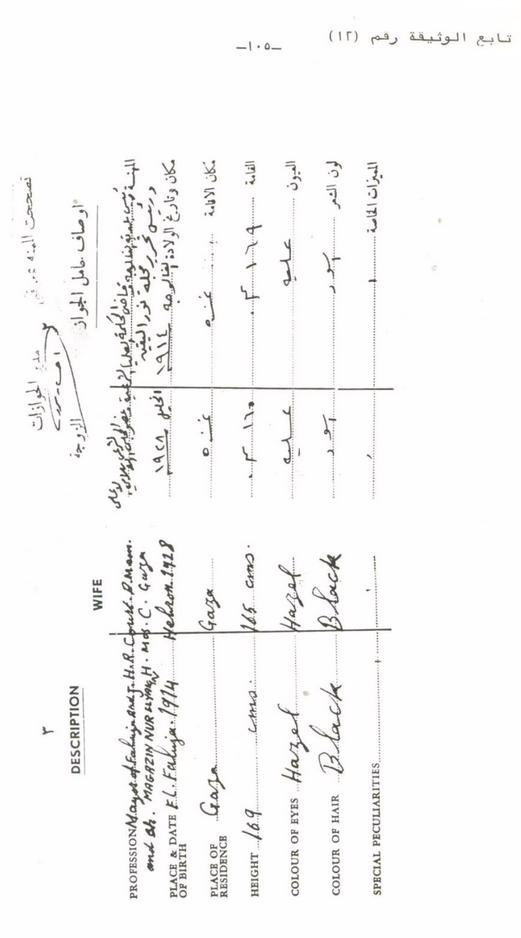 تابع الوثيقة رقم (١٢)
—١٠٥—
٣
DESCRIPTION
WIFE
PROFESSION Mayor of Faluja and J. H. R. Court. P. Mem.
and sh. MAGAZIN NUR H. Mos. C. Gaza
PLACE & DATE OF BIRTH EL. Faluja. 1914 Hebron. 1928
PLACE OF RESIDENCE Gaza Gaza
HEIGHT 169 cms. 165 cms.
COLOUR OF EYES Hazel Hazel
COLOUR OF HAIR Black Black
SPECIAL PECULIARITIES
تصححت المهنه
مدير الجوازات
٣
اوصاف حامل الجواز
الزوجة
المهنة
ورئيس تحرير مجلة نور اليقين
مكان وتاريخ الولادة الفالوجه ١٩١٤ الخليل ١٩٢٨
مكان الاقامة غزه غزه
القامة ١٦٩ ٣ ١٦٥ ٣
العيون عسليه عسليه
لون الشعر اسود اسود
المميزات الخاصة